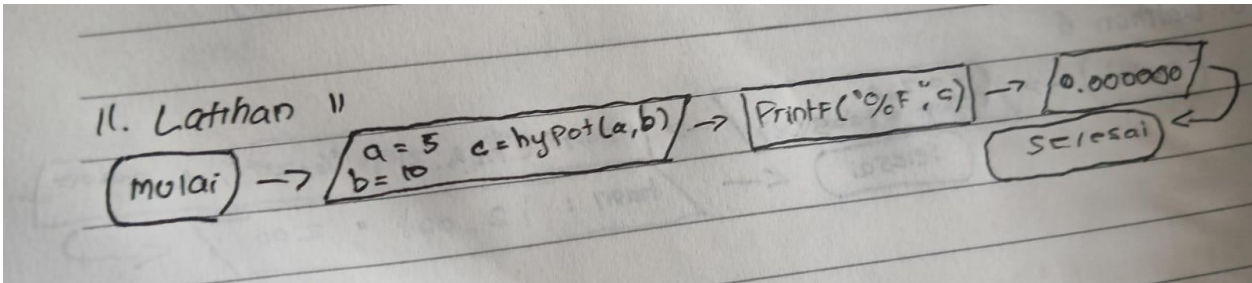 11. Latihan 11
mulai → a = 5 c = hypot(a,b) → PrintF("%F", c) → 0.000000
b = 10
selesai